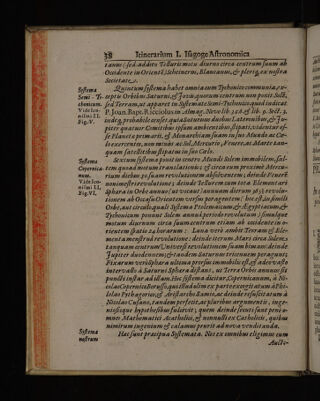 38 Itinerarium I. Isagoge Astronomica
tanus (sed addito Telluris motu diurno circa centrum suum ab
Occidente in Orientē) Scheinerus, Blancanus, & pleriq; ex nostra
Societate.
Systema Semi-Tychonicum.
Quintum systema habet omnia cum Tychonico communia, except
Orbibus Saturni, & Jovis quorum centrum non ponit Solē,
sed Terram, ut apparet in Systemate Semi-Tychonico, quod indicat
P. Joan. Bapt. Ricciolus in Almag. Novo lib.
& Jupiter
quatuor Comitibus ipsum ambientibus stipati, videntur esse
Planetæ primarii, & Monarchiam suam in suo Mundo ac Cœlo
exercentes, non minùs ac Sol, Mercurio, Venere, ac Marte tanquam
satellitibus stipatus in suo Cœlo.
Systema Copernicanum.
Sextum systema ponit in centro Mundi Solem immobilem, saltem
quoad motum translationis; & circa eum proximè Mercurium
diebus 90 suam revolutionem absolventem; deinde Venerē
novimestri revolutione; deinde Tellurem cum tota Elementari
Sphæra in Orbe annuo (ut vocant) annuam dierum 365 revolutionem
ab Occasu Orientem versus peragentem; hoc est, in simili
Orbe, aut circulo, quali Systema Ptolemaicum, & Ægyptiacum, &
Tychonicum ponunt Solem annuâ periodo revolutum; simulque
motu diurnum circa suum centrum etiam ab occidente in orientem
spatio 24 horarum: Luna verò ambit Terram & Elementa
menstruâ revolutione; deinde iterum Mars circa Solem
tanquam centrum Universi revolutionem suam bimam; deinde
Jupiter duodennem; & tandem Saturnus triennem peragunt.
Fixarum verò sphæra ultima prorsus immobilis est, & adeo vasto
intervallo à Saturni Sphæra distans, ut Terræ Orbis annuus sit
puncti instar ad illam. Hoc systema dicitur Copernicanum, à Nicolao
Copernico Borusso, quasi ad illum ex parte excogitatum à Philolao
Pythagorico, & Aristarcho Samio, ac deinde resuscitatum à
Nicolao Cusano, tandem perfecit, ac pluribus argumentis, ingeniosisque
hypothesibus fulcivit; quem deinde secuti sunt penè omnes
Mathematici Acatholici, & nonnulli ex Catholicis, quibus
nimirum ingenium & calamus prurit ad nova venditanda.
Systema nostrum
Hac sunt præcipua Systemata. Nos ex omnibus eligimus cum
Aucto-